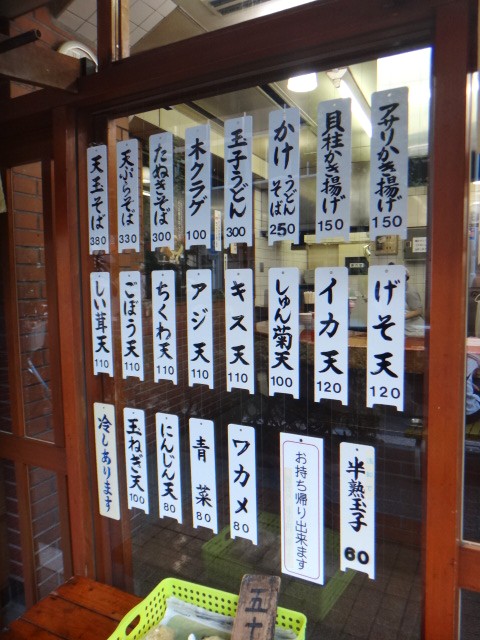 アサリかき揚げ 150
貝柱かき揚げ 150
かけうどんそば 250
玉子うどん 300
木クラゲ 100
たぬきそば 300
天ぷらそば 330
天玉そば 380
げそ天 120
イカ天 120
しゅん菊天 100
キス天 110
アジ天 110
ちくわ天 110
ごぼう天 110
しい茸天 110
半熟玉子 60
お持ち帰り出来ます
ワカメ 80
青菜 80
にんじん天 80
玉ねぎ天 100
冷しあります
五十